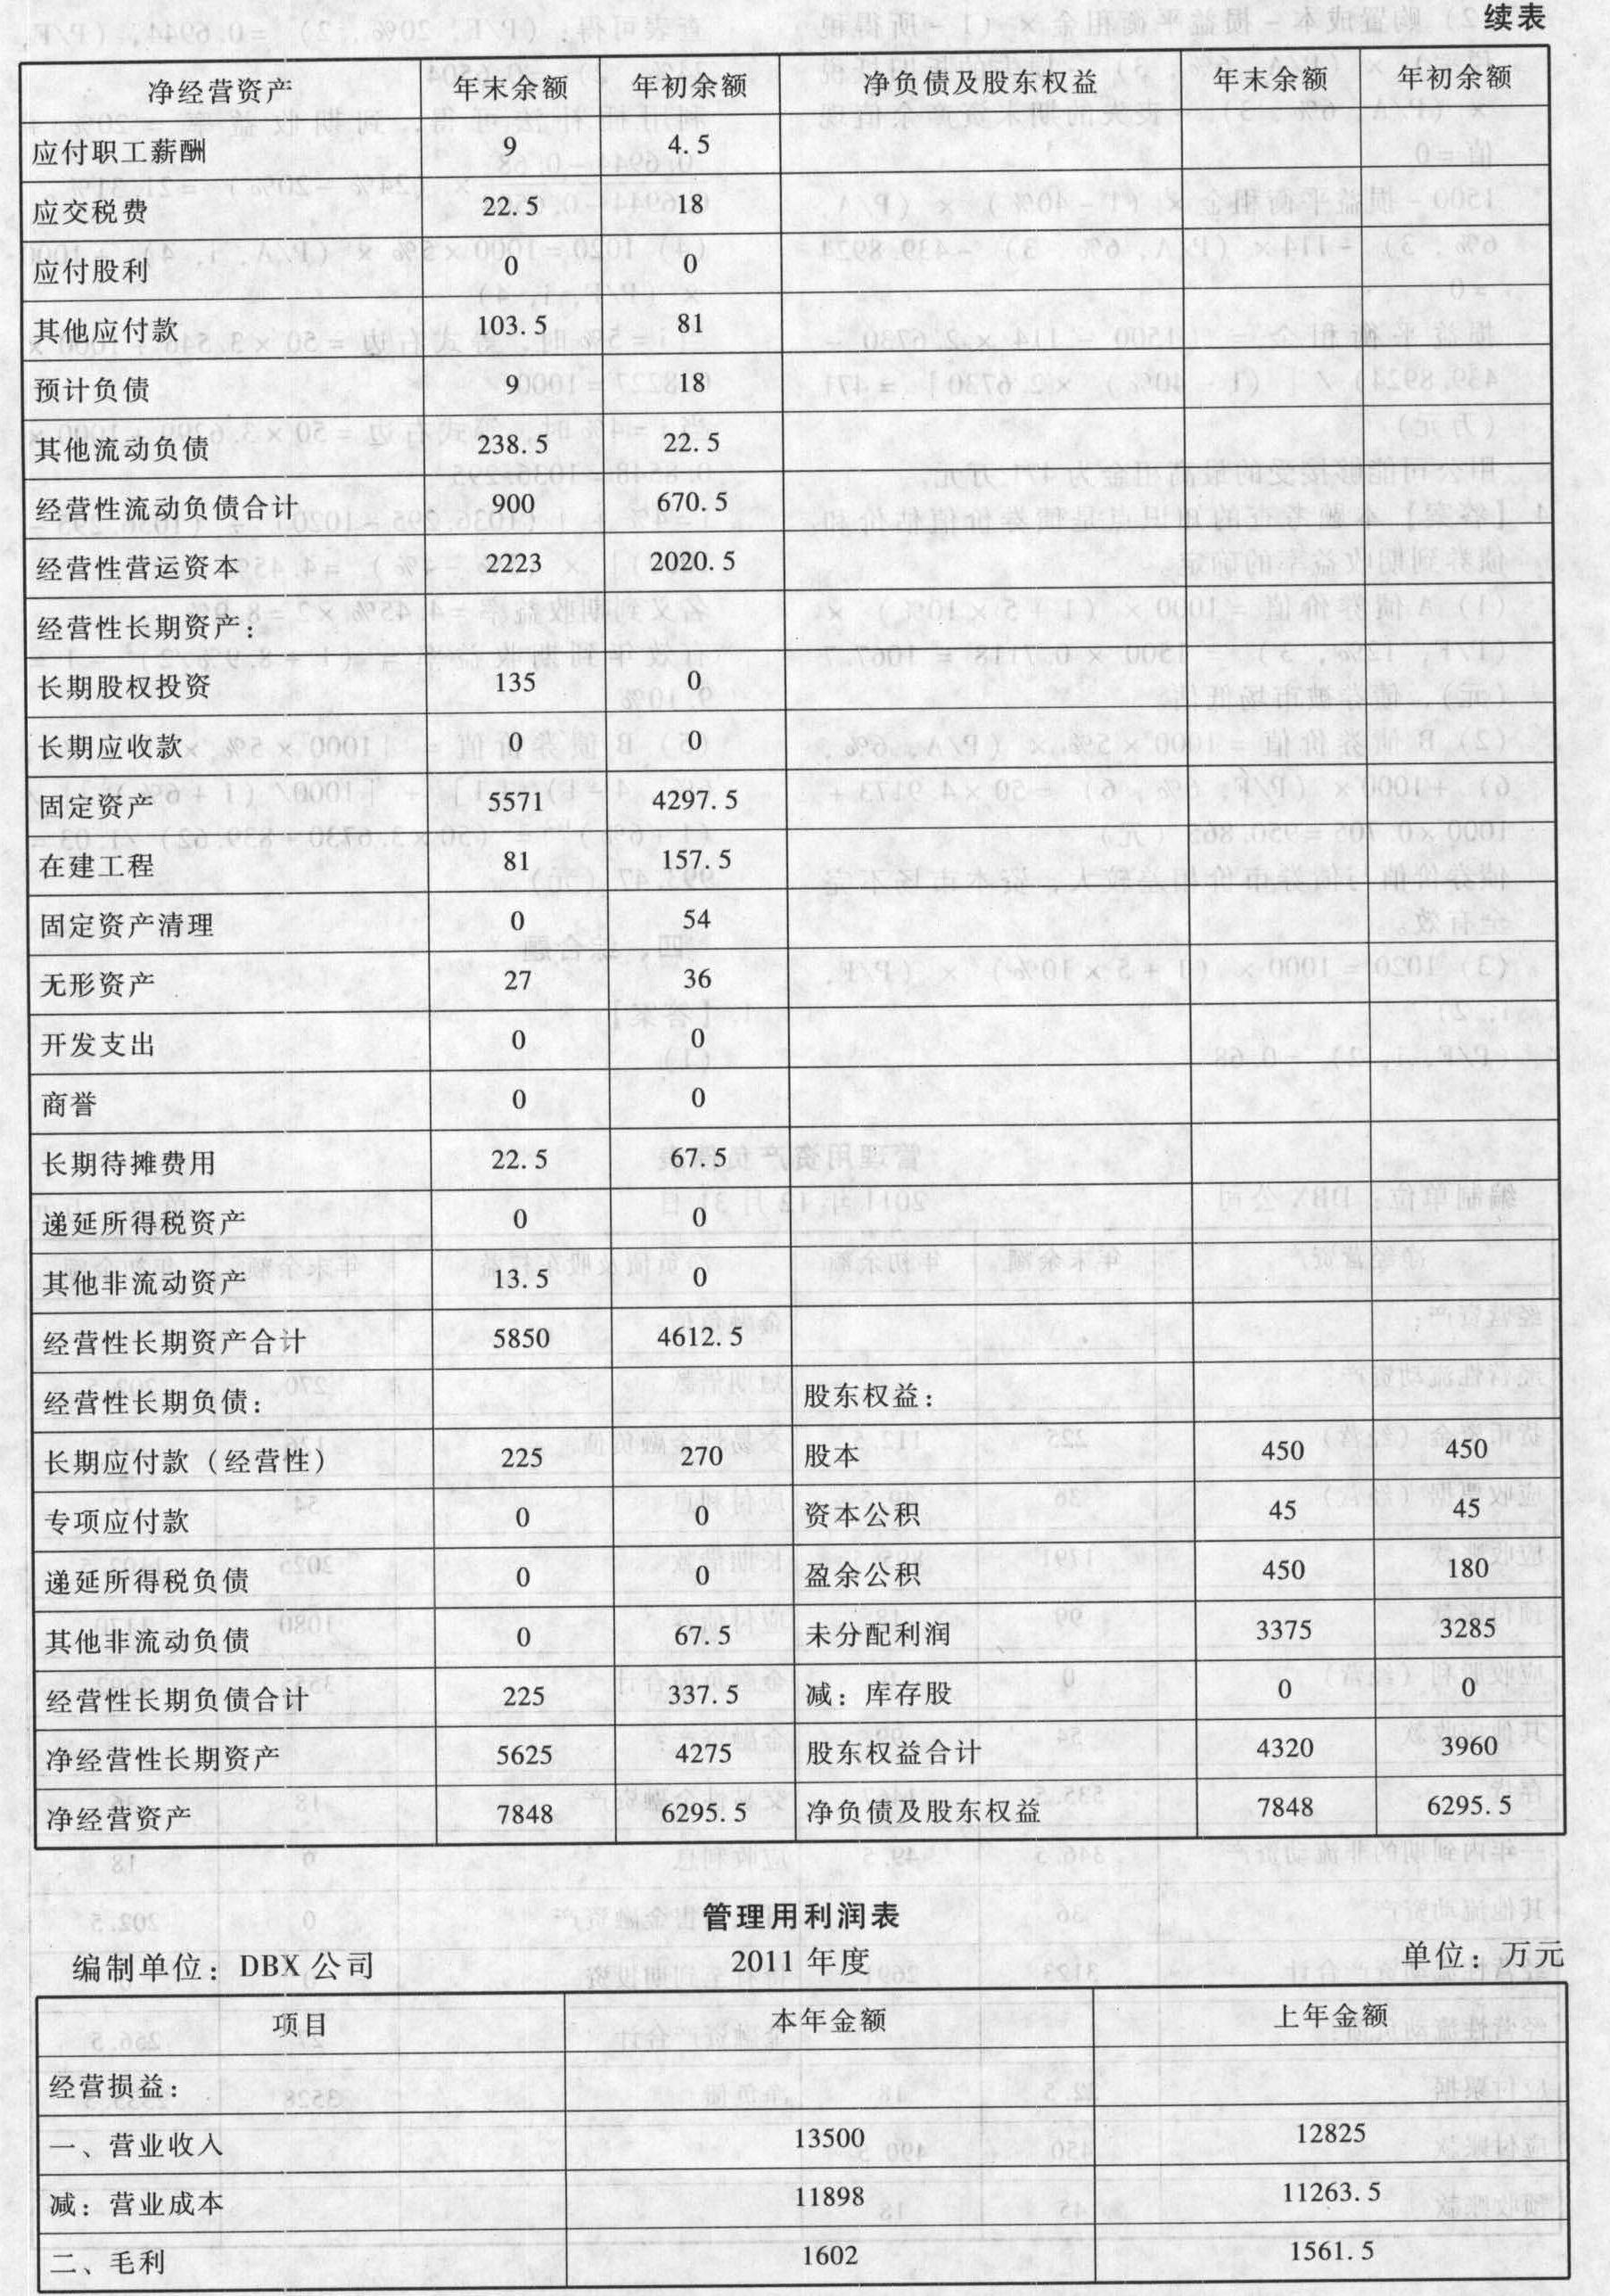 续表
净经营资产 年末余额 年初余额 净负债及股东权益 年末余额 年初余额
应付职工薪酬 9 4.5
应交税费 22.5 18
应付股利 0 0
其他应付款 103.5 81
预计负债 9 18
其他流动负债 238.5 22.5
经营性流动负债合计 900 670.5
经营性营运资本 2223 2020.5
经营性长期资产：
长期股权投资 135 0
长期应收款 0 0
固定资产 5571 4297.5
在建工程 81 157.5
固定资产清理 0 54
无形资产 27 36
开发支出 0 0
商誉 0 0
长期待摊费用 22.5 67.5
递延所得税资产 0 0
其他非流动资产 13.5 0
经营性长期资产合计 5850 4612.5
经营性长期负债： 股东权益：
长期应付款（经营性） 225 270 股本 450 450
专项应付款 0 0 资本公积 45 45
递延所得税负债 0 0 盈余公积 450 180
其他非流动负债 0 67.5 未分配利润 3375 3285
经营性长期负债合计 225 337.5 减：库存股 0 0
净经营性长期资产 5625 4275 股东权益合计 4320 3960
净经营资产 7848 6295.5 净负债及股东权益 7848 6295.5
管理用利润表
编制单位：DBX 公司 2011 年度 单位：万元
项目 本年金额 上年金额
经营损益：
一、营业收入 13500 12825
减：营业成本 11898 11263.5
二、毛利 1602 1561.5